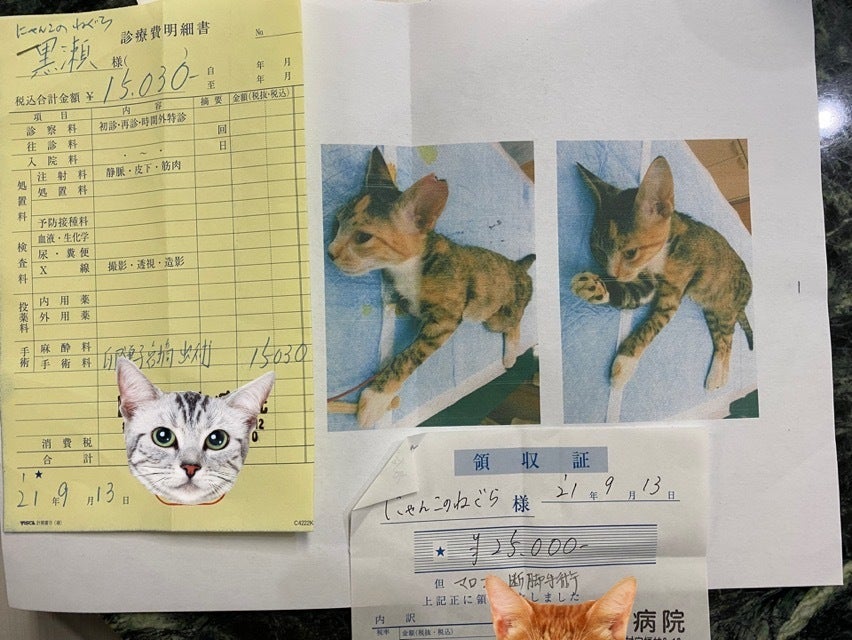 にゃんこのねぐら
診療費明細書
No.
黒瀬 様( )
自 年 月
至 年 月
税込合計金額 ¥ 15,030-
項目 内容 摘要 金額(税抜・税込)
診察料 初診・再診・時間外特診 回
往診料 日
入院料 ・ 〜 ・
処置料 注射料 静脈・皮下・筋肉
処置料
予防接種料
検査料 血液・生化学
尿・糞便
X線 撮影・透視・造影
投薬料 内用薬
外用薬
手術 麻酔料
手術料 卵巣子宮摘出術 15030
消費税
合計
★
21年 9月 13日
C4222K
領収証
にゃんこのねぐら 様 '21年 9月 13日
★ ¥25,000-
但 断脚手術
上記正に領 たしました
内訳
税率 金額(税抜・税込)
病院